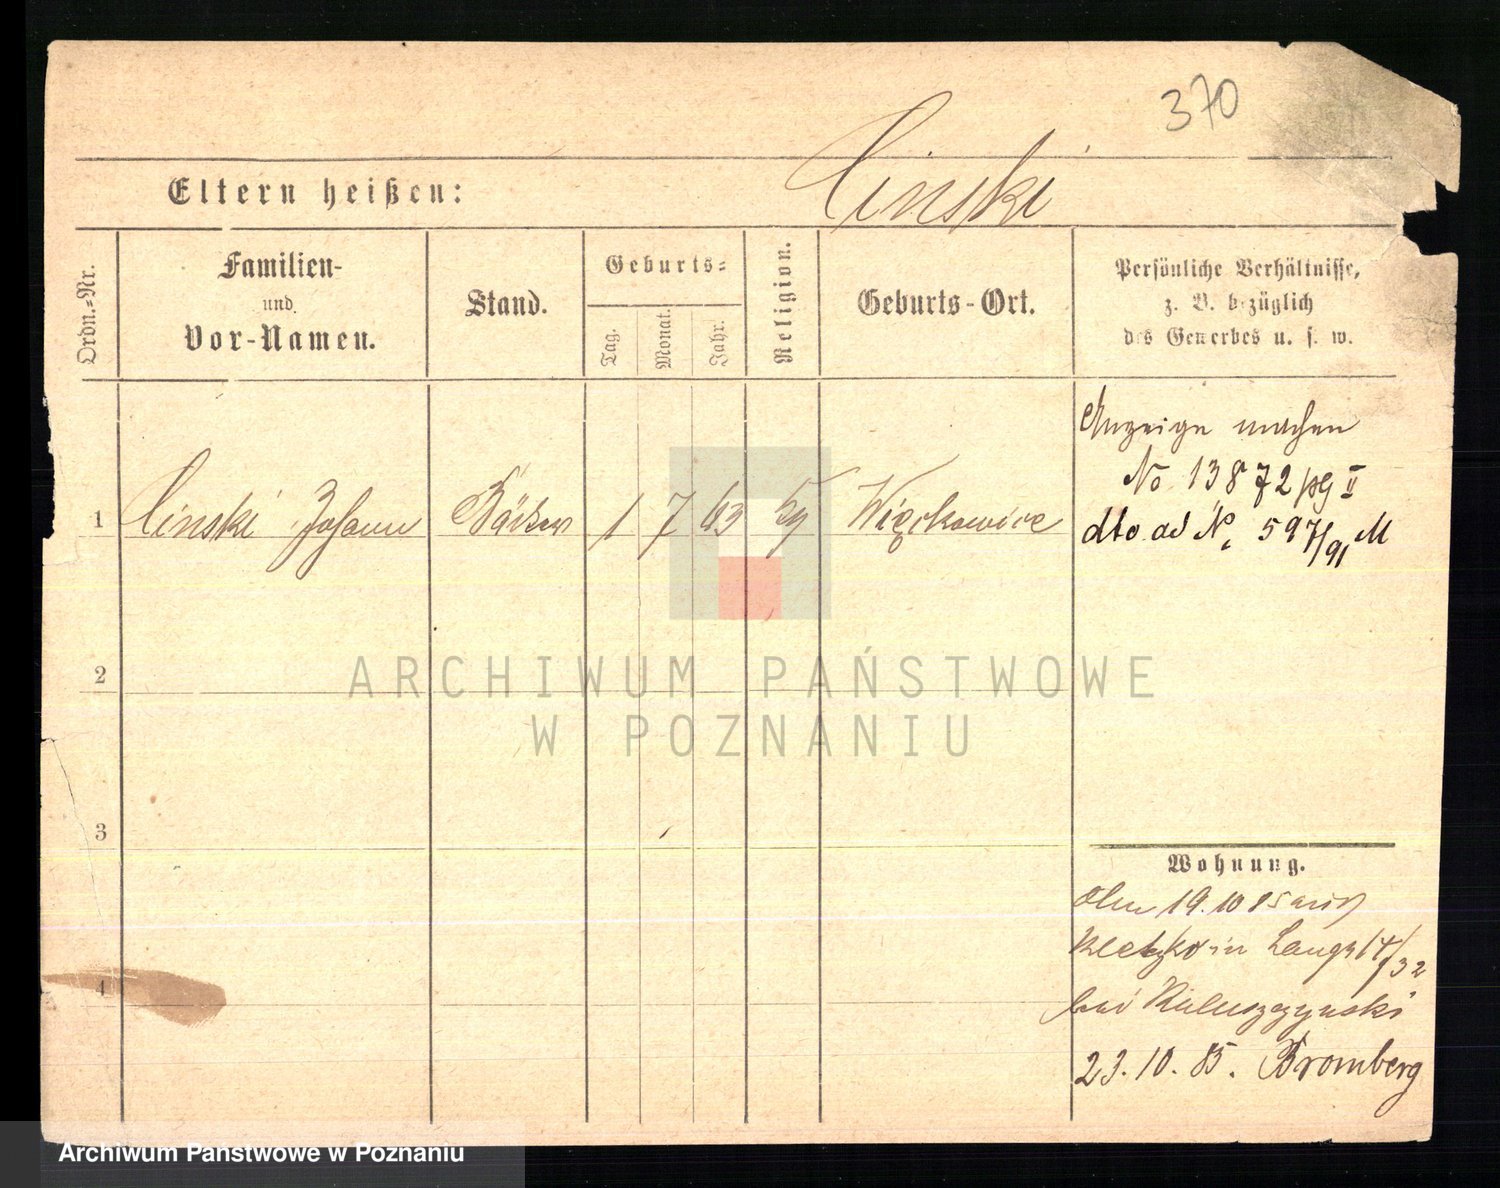 370
Cinski
Eltern heißen:
Ordn.-Nr.
Familien-
und
Vor-Namen.
Stand.
Geburts-
Tag.
Monat.
Jahr.
Religion.
Geburts-Ort.
Persönliche Verhältnisse,
z. B. bezüglich
des Gewerbes u. s. w.
Anzeige machen
No 13872 pg II
dto ad No 597/91 M
1 Cinski Johann Bäcker 1 7 63 Więckowice
2
3
4
Wohnung.
19.10 85 aus
Kletzko in 14/32
bei
23.10.85. Bromberg
ARCHIWUM PAŃSTWOWE
W POZNANIU
Archiwum Państwowe w Poznaniu